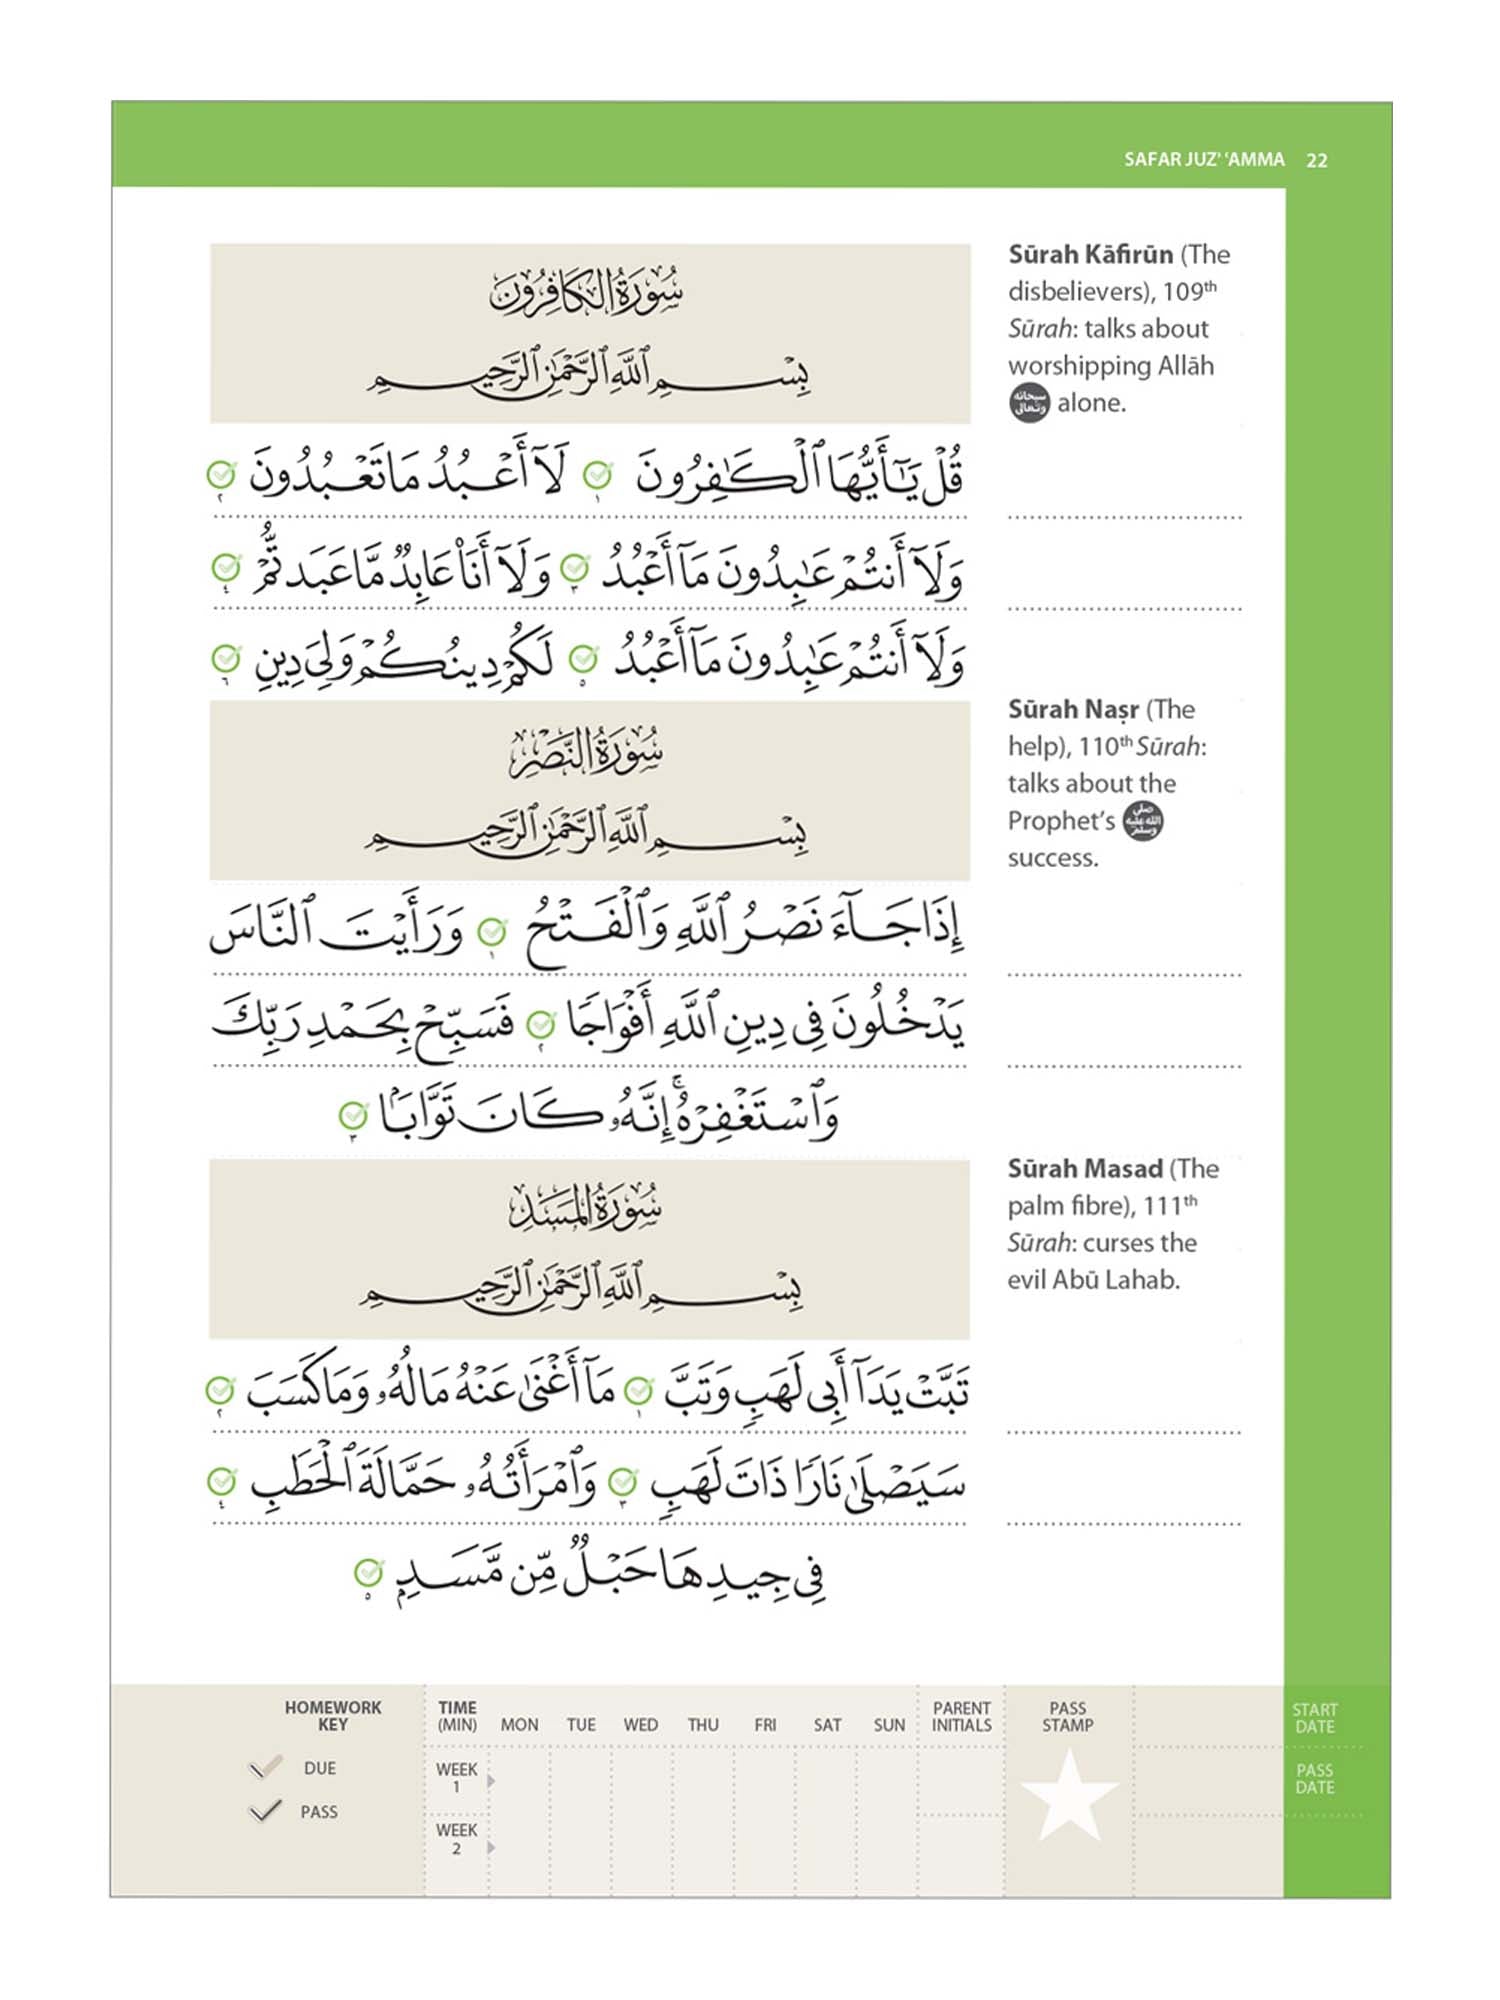 SAFAR JUZ’ ‘AMMA 22
سُورَةُ الكَافِرُونَ
بِسْمِ ٱللَّهِ ٱلرَّحْمَٰنِ ٱلرَّحِيمِ
قُلْ يَٰٓأَيُّهَا ٱلْكَٰفِرُونَ ١ لَآ أَعْبُدُ مَا تَعْبُدُونَ ٢
وَلَآ أَنتُمْ عَٰبِدُونَ مَآ أَعْبُدُ ٣ وَلَآ أَنَا۠ عَابِدٌ مَّا عَبَدتُّمْ ٤
وَلَآ أَنتُمْ عَٰبِدُونَ مَآ أَعْبُدُ ٥ لَكُمْ دِينُكُمْ وَلِىَ دِينِ ٦
Sūrah Kāfirūn (The
disbelievers), 109th
Sūrah: talks about
worshipping Allāh
سبحانه وتعالى alone.
سُورَةُ النَّصْرِ
بِسْمِ ٱللَّهِ ٱلرَّحْمَٰنِ ٱلرَّحِيمِ
إِذَا جَآءَ نَصْرُ ٱللَّهِ وَٱلْفَتْحُ ١ وَرَأَيْتَ ٱلنَّاسَ
يَدْخُلُونَ فِى دِينِ ٱللَّهِ أَفْوَاجًا ٢ فَسَبِّحْ بِحَمْدِ رَبِّكَ
وَٱسْتَغْفِرْهُ ۚ إِنَّهُۥ كَانَ تَوَّابًۢا ٣
Sūrah Naṣr (The
help), 110th Sūrah:
talks about the
Prophet’s صلى الله عليه وسلم
success.
سُورَةُ المَسَدِ
بِسْمِ ٱللَّهِ ٱلرَّحْمَٰنِ ٱلرَّحِيمِ
تَبَّتْ يَدَآ أَبِى لَهَبٍ وَتَبَّ ١ مَآ أَغْنَىٰ عَنْهُ مَالُهُۥ وَمَا كَسَبَ ٢
سَيَصْلَىٰ نَارًا ذَاتَ لَهَبٍ ٣ وَٱمْرَأَتُهُۥ حَمَّالَةَ ٱلْحَطَبِ ٤
فِى جِيدِهَا حَبْلٌ مِّن مَّسَدٍۭ ٥
Sūrah Masad (The
palm fibre), 111th
Sūrah: curses the
evil Abū Lahab.
HOMEWORK
KEY
DUE
PASS
TIME
(MIN) MON TUE WED THU FRI SAT SUN
WEEK
1
WEEK
2
PARENT
INITIALS
PASS
STAMP
START
DATE
PASS
DATE